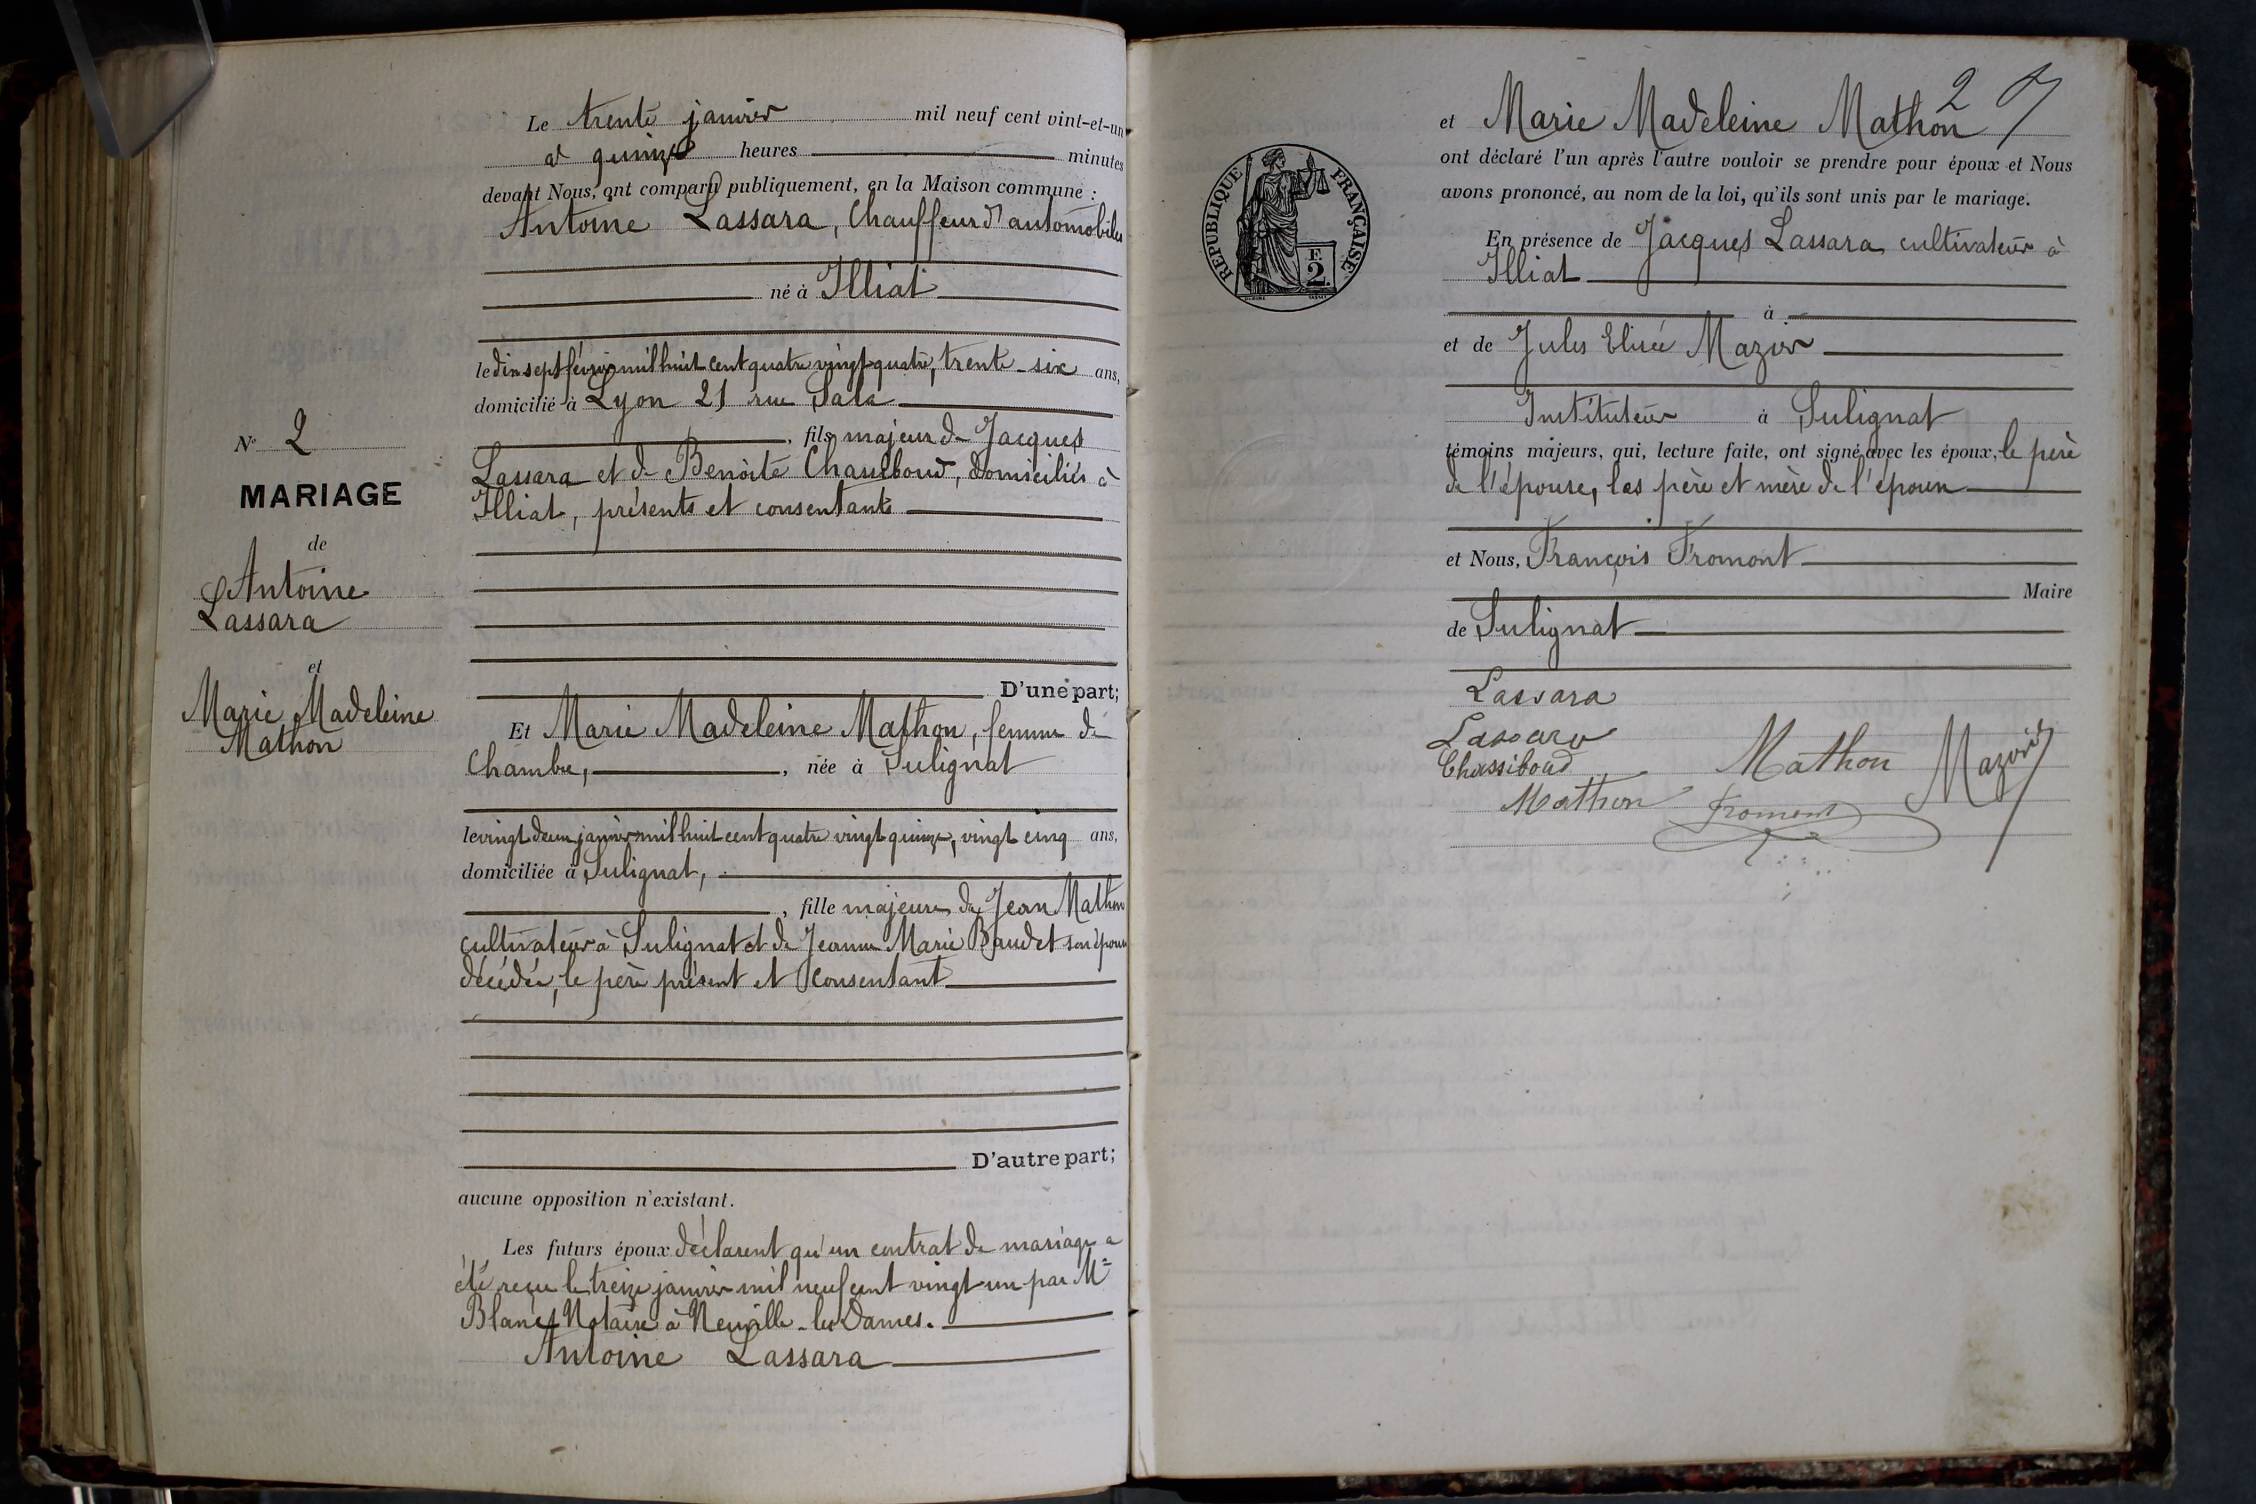 Le trente janvier mil neuf cent vint-et-un
à quinze heures minutes
devant Nous, ont comparu publiquement, en la Maison commune :
Antoine Lassara, Chauffeur d'automobiles
né à Illiat
le dix sept février mil huit cent quatre vingt quatre, trente-six ans,
domicilié à Lyon 21 rue Sala
, fils majeur de Jacques
Lassara et de Benoîte Chassiboud, domiciliés à
Illiat, présents et consentants
D'une part;
Et Marie Madeleine Mathon, femme de
Chambre, , née à Sulignat
le vingt deux janvier mil huit cent quatre vingt quinze, vingt cinq ans,
domiciliée à Sulignat,
, fille majeure de Jean Mathon
cultivateur à Sulignat et de Jeanne Marie Baudet son épouse
décédée, le père présent et consentant
D'autre part;
aucune opposition n'existant.
Les futurs époux déclarent qu'un contrat de mariage a
été reçu le treize janvier mil neuf cent vingt un par Me
Blanc Notaire à Neuville-les Dames.
Antoine Lassara
No 2
MARIAGE
de
Antoine
Lassara
et
Marie Madeleine
Mathon
2
et Marie Madeleine Mathon
ont déclaré l'un après l'autre vouloir se prendre pour époux et Nous
avons prononcé, au nom de la loi, qu'ils sont unis par le mariage.
RÉPUBLIQUE FRANÇAISE
F.
2.
En présence de Jacques Lassara cultivateur à
Illiat
à
et de Jules Elisée Mazoir
Instituteur à Sulignat
témoins majeurs, qui, lecture faite, ont signé avec les époux, le père
de l'épouse, les père et mère de l'époux
et Nous, François Fromont
Maire
de Sulignat
Lassara
Lassara
Chassiboud
Mathon Mazoir
Mathon Froment